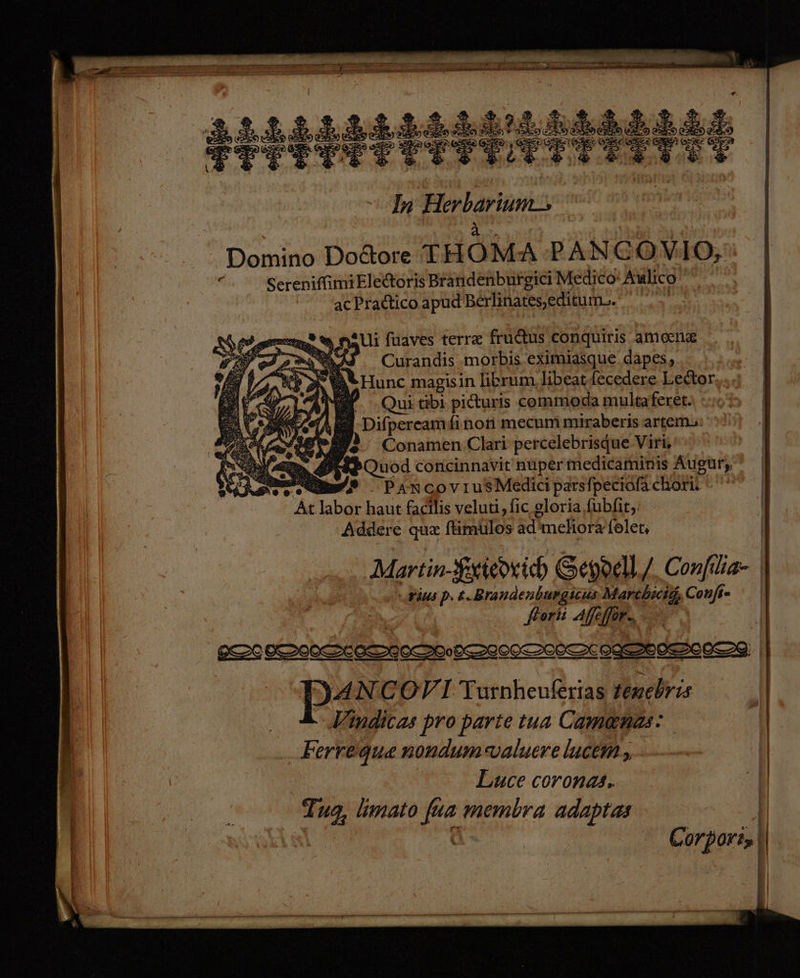 In Herbarium
à
Domino Doctore THOMA PANCOVIO,
Sereniſſimi Electoris Brandenburgici Medico Aulico
ac Practico apud Berlinates, editum.
Ui ſuaves terræ fructus conquiris amœnæ
Curandis morbis eximiasque dapes,
Hunc magis in librum libeat ſecedere Lector,
Qui tibi picturis commoda multa feret.
Diſpeream ſi non mecum miraberis artem:
Conamen Clari percelebrisque Viri,
Quod concinnavit nuper medicaminis Augur,
PANCOVIUS Medici pars ſpecioſa chori.
At labor haut facilis veluti, ſic gloria ſubſit,
Addere quæ ſtimulos ad meliora ſolet,
Martin-Friedrich Seydell / Conſilia-
rius p. t. Brandenburgicus Marchicꝰ, Conſi-
ſtorii Aſſeſſor.
PANCOVI Turnheuſerias tenebris
Vindicas pro parte tua Camœnas:
Ferreque nondum valuere lucem,
Luce coronas.
Tuq, limato ſua membra adaptas
Corpori,